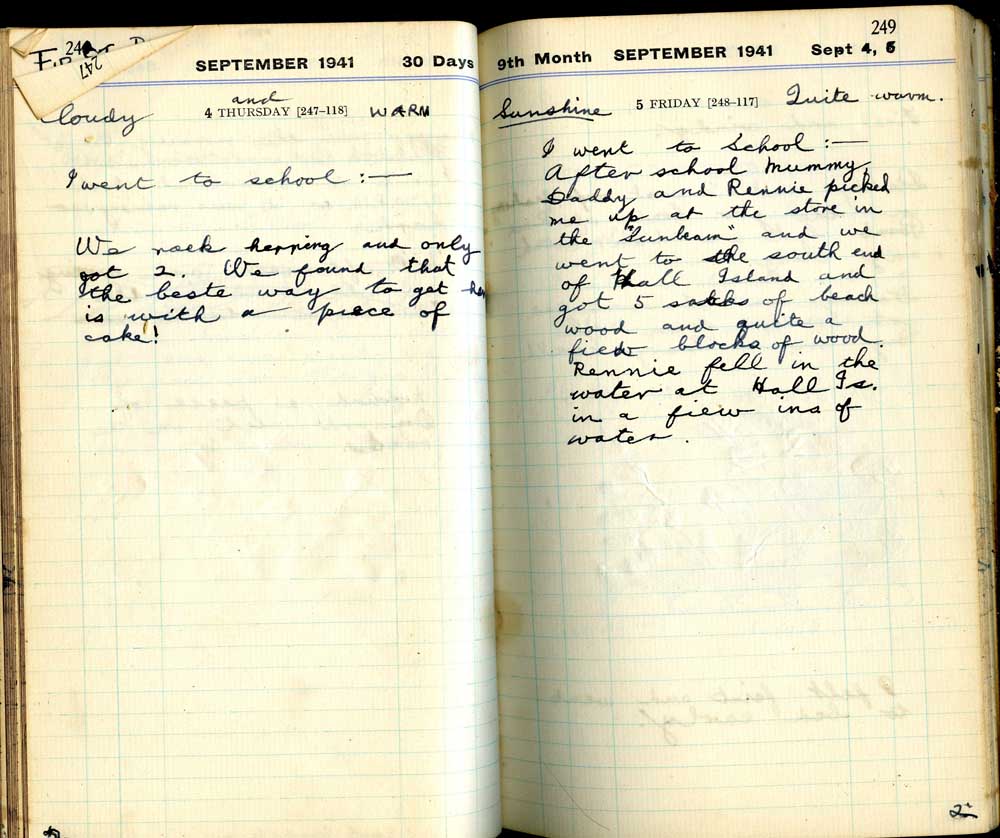 248
247
SEPTEMBER 1941 30 Days
Cloudy and WARM
4 THURSDAY [247–118]
I went to school :—
We rack herring and only
got 2. We found that
the beste way to get her
is with a piece of
cake!
249
9th Month SEPTEMBER 1941 Sept 4, 5
Sunshine 5 FRIDAY [248–117] Quite warm.
I went to School :—
After school Mummy,
Daddy and Rennie picked
me up at the store in
the "Sunbeam" and we
went to the south end
of Hall Island and
got 5 sacks of beach
wood and quite a
fiew blocks of wood.
Rennie fell in the
water at Hall Is.
in a fiew ins of
water.